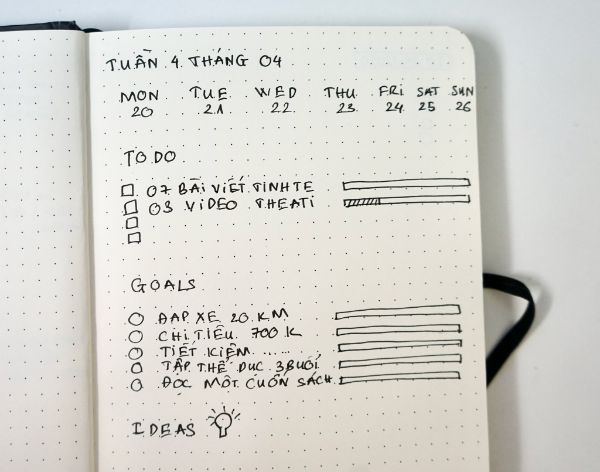 TUẦN 4 THÁNG 04
MON TUE WED THU FRI SAT SUN
20 21 22 23 24 25 26
TO DO
07 BÀI VIẾT TINHTE
03 VIDEO THEATI
GOALS
ĐẠP XE 20 KM
CHI TIÊU 700K
TIẾT KIỆM ......
TẬP THỂ DỤC 3 BUỔI
ĐỌC MỘT CUỐN SÁCH
IDEAS